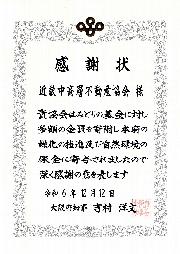 感謝状
近畿中高層不動産協会 様
貴協会はみどりの基金に対し
多額の金員を寄附し本府の
緑化の推進及び自然環境の
保全に寄与されましたので
深く感謝の意を表します
令和6年12月12日
大阪府知事 吉村 洋文